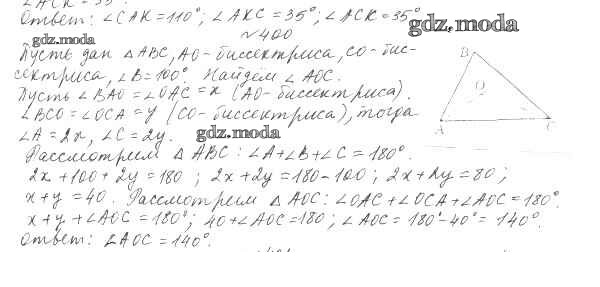 ∠ACK = 35°.
Ответ: ∠CAK = 110°; ∠AKC = 35°; ∠ACK = 35°
gdz.moda
№400
gdz.moda
Пусть дан △ABC, AO-биссектриса, CO-бис-
сектриса, ∠B = 100°. Найдём ∠AOC.
Пусть ∠BAO = ∠OAC = x (AO-биссектриса).
∠BCO = ∠OCA = y (CO-биссектриса), тогда
∠A = 2x, ∠C = 2y.
gdz.moda
Рассмотрим △ABC: ∠A+∠B+∠C = 180°.
2x+100+2y = 180 ; 2x+2y = 180-100 ; 2x+2y = 80 ;
x+y = 40. Рассмотрим △AOC: ∠OAC+∠OCA+∠AOC = 180°.
x+y+∠AOC = 180°; 40+∠AOC = 180 ; ∠AOC = 180°-40° = 140°.
Ответ: ∠AOC = 140°.
B
O
A
C